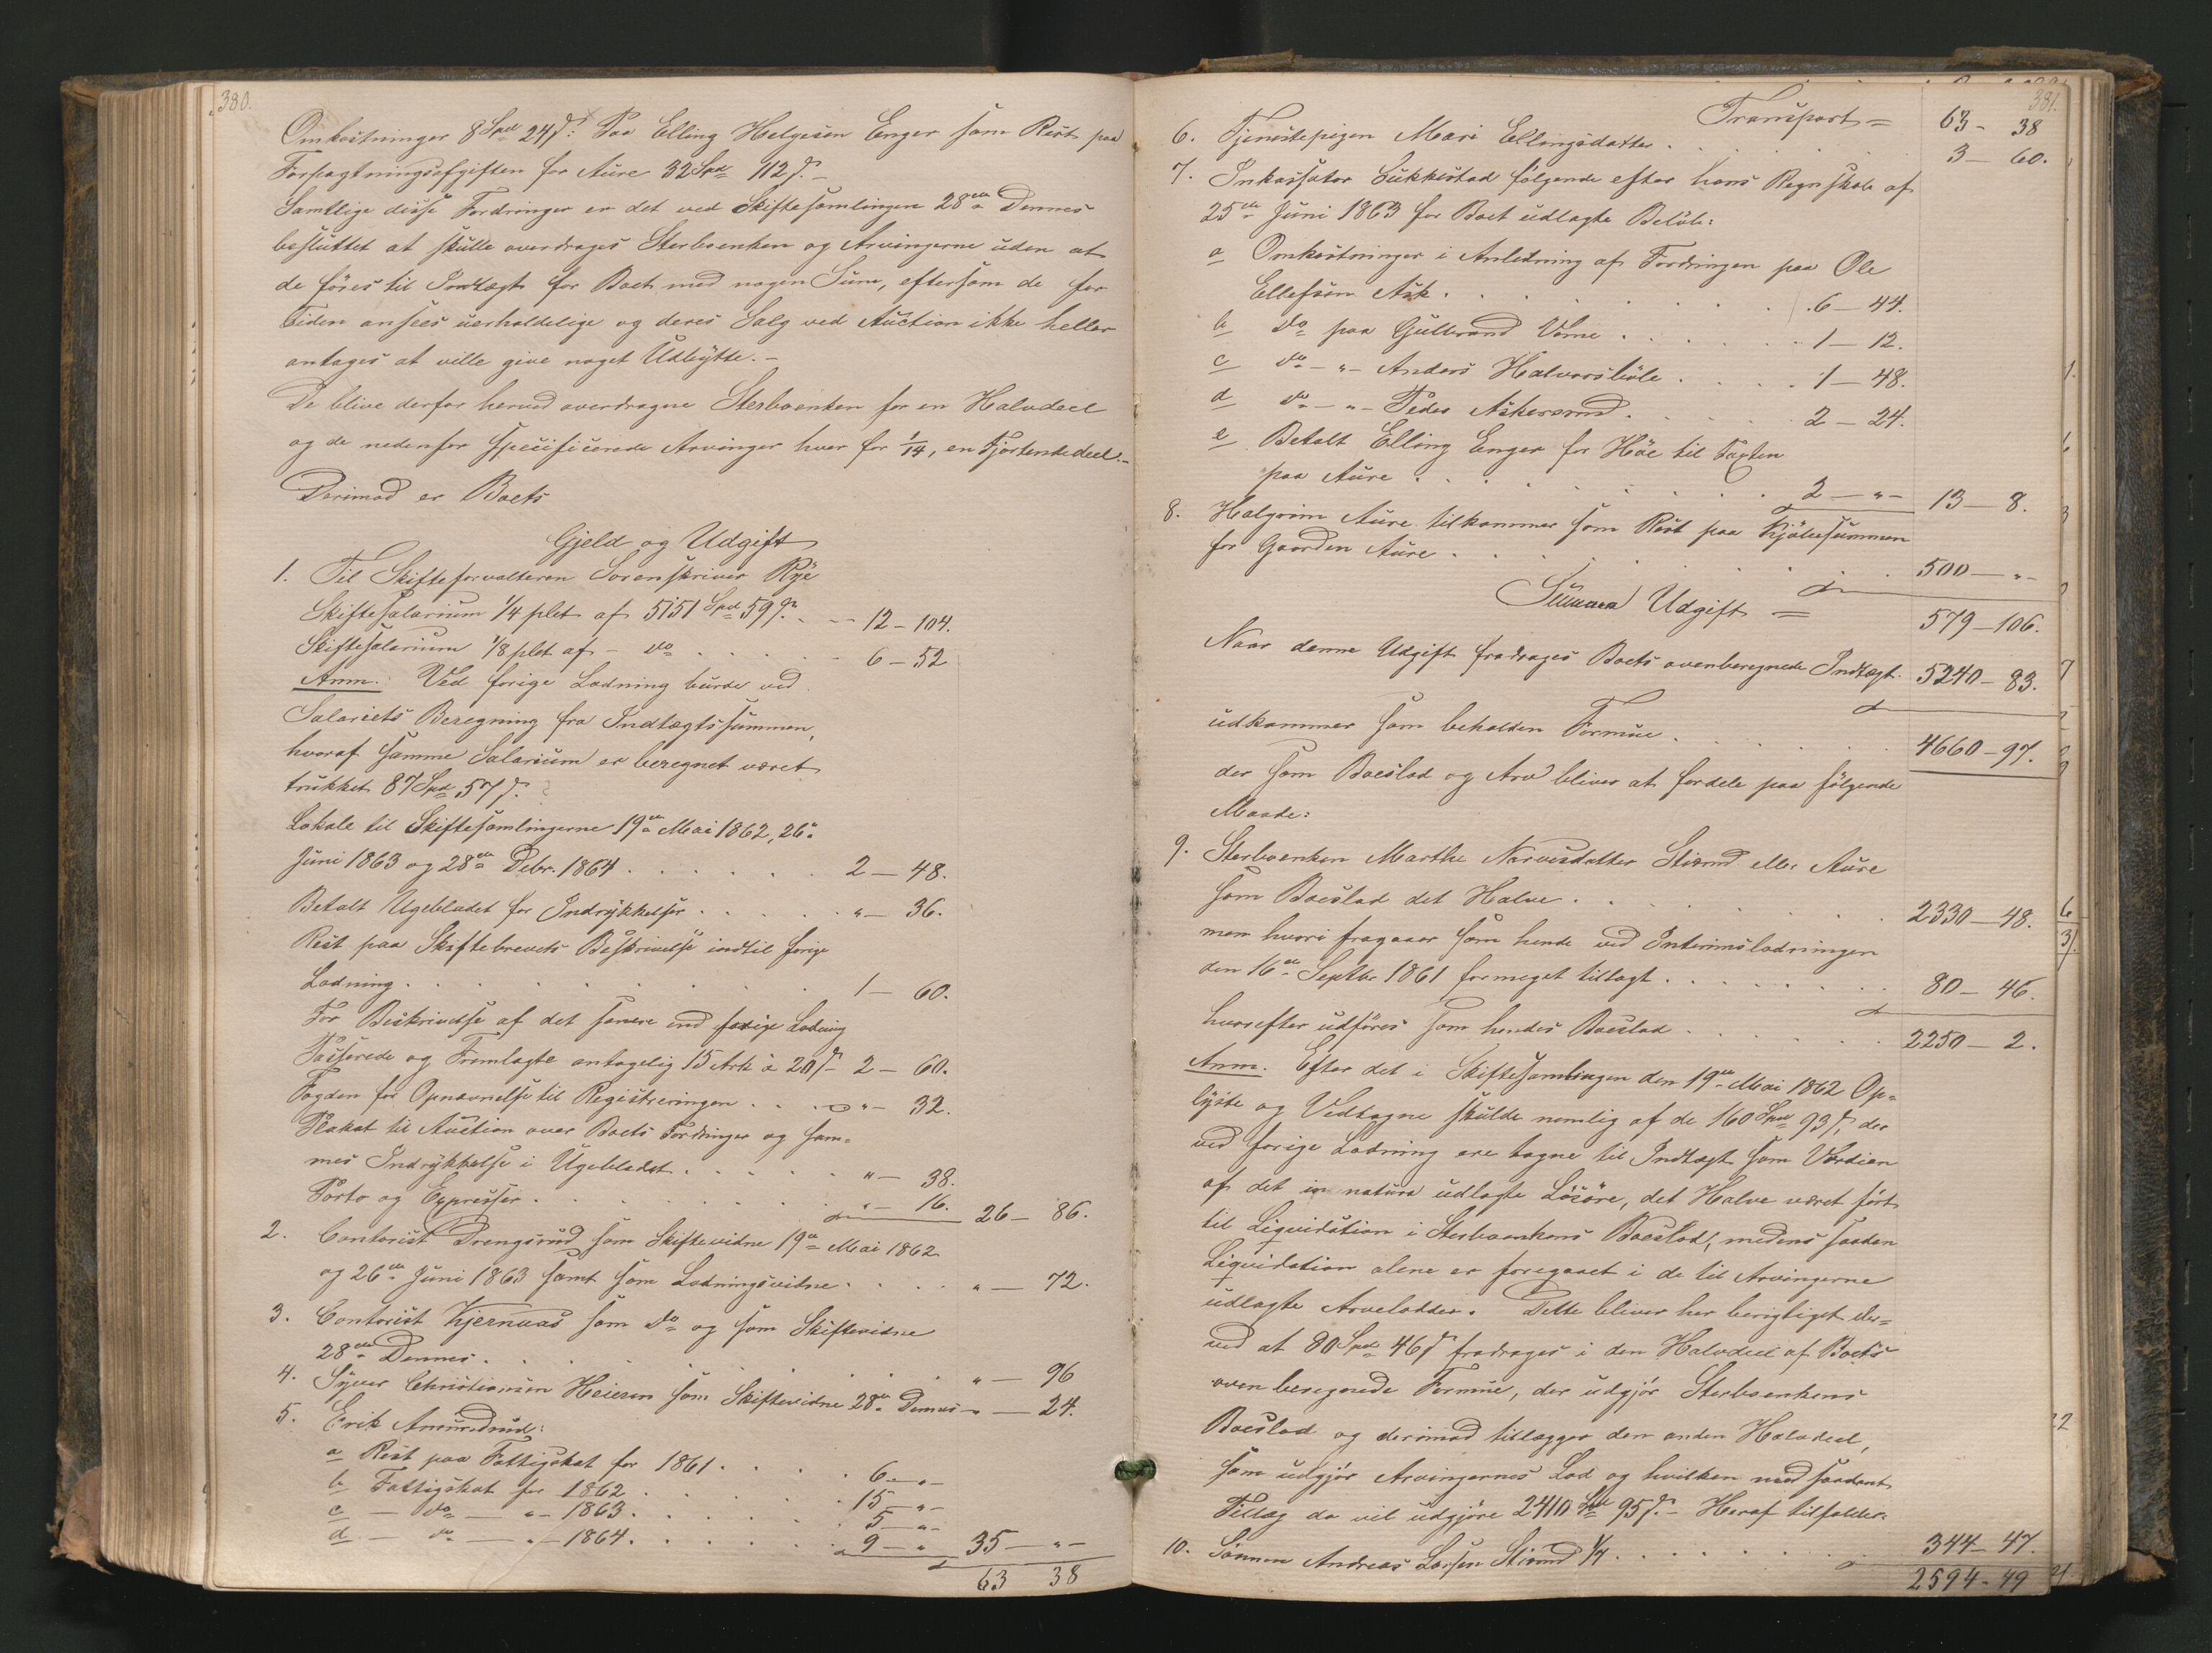 380.
Omkostninger 8 Spd 24 s: Paa Elling Helgesen Enger som Rest paa
Forpagtningsafgiften for Aure 32 Spd 112 s. -
Samtlige disse Fordringer er det ved Skiftesamlingen 28de Dennes
besluttet at skulle overdrages Sterboenken og Arvingerne uden at
de føres til Indtægt for Boet med nogen Sum, eftersom de for
Tiden ansees uerholdelige og deres Salg ved Auction ikke heller
antages at ville give noget Udbytte. -
De blive derfor herved overdragne Sterboenken for en Halvdeel
og de nedenfor specificerede Arvinger hver for 1/14, en Fjortendedeel. -
Derimod er Boets
Gjeld og Udgift
1. Til Skifteforvalteren Sorenskriver Rye
Skiftesalarium 1/4 pCt af 5151 Spd 59 s. . . - 12 - 104.
Skiftesalarium 1/8 pCt af - do . . . . . 6 - 52
Anm. Ved forige Lodning burde ved
Salariets Beregning fra Indtægtssummen,
hvoraf samme Salarium er beregnet været
trukket 87 Spd 57 s.
Lokale til Skiftesamlingerne 19de Mai 1862, 26de
Juni 1863 og 28de Debr. 1864 . . . . . . 2 - 48.
Betalt Ugebladet for Indrykkelser . . . . . " - 36.
Rest paa Skiftebrevets Beskrivelse indtil forige
Lodning . . . . . . . . . 1 - 60.
For Beskrivelse af det senere end forige Lodning
Passerede og Fremlagte antagelig 15 Ark à 20 s - 2 - 60.
Fogden for Opnævnelse til Registreringen . . . " - 32.
Plakat til Auction over Boets Fordringer og sam=
mes Indrykkelse i Ugebladet . . . . . . " - 38.
Porto og Expresser . . . . . . . . " - 16. 26 - 86.
2. Contorist Drengsrud som Skiftevidne 19de Mai 1862
og 26de Juni 1863 samt som Lodningsvidne . . . . " - 72.
3. Contorist Kjernaas som do og som Skiftevidne
28de Dennes . . . . . . . . . " - 96
4. Syver Christiansen Heieren som Skiftevidne 28de Dennes - " - 24.
5. Erik Amundrud:
a Rest paa Fattigskat for 1861 . . . . 6 - " -
b Fattigskat for 1862 . . . . . . 15 - " -
c - do - " - 1863 . . . . . . 5 - " -
d - do - " - 1864 . . . . . . 9 - " 35 - " -
63 38
381.
Transport = 63 - 38
6. Tjenestepigen Mari Ellingsdatter . . . . . . 3 - 60.
7. Inkassator Lukkestad følgende efter hans Regnskab af
25de Juni 1863 for Boet udlagte Beløb:
a Omkostninger i Anledning af Fordringen paa Ole
Ellefsen Ask . . . . . . . . . 6 - 44.
b do paa Gulbrand Vorne . . . . . . 1 - 12.
c do - " - Anders Halvorsbøle . . . . 1 - 48.
d do - " - Peder Askerud . . . . . 2 - 24.
e Betalt Elling Enger for Høe til Faxten
paa Aure . . . . . . . . . 2 - " - 13 - 8.
8. Halgrim Aure tilkommer som Rest paa Kjøbesummen
for Gaarden Aure . . . . . . . . 500 - " -
Summa Udgift = 579 - 106.
Naar denne Udgift fradrages Boets ovenberegnede Indtægt 5240 - 83.
udkommer som beholden Formue . . . . . . 4660 - 97.
der som Boeslod og Arv bliver at fordele paa følgende
Maade:
9. Sterboenken Marthe Narvesdatter Stixrud eller Aure
som Boeslod det Halve . . . . . . . . 2330 - 48.
men hvori fragaaer som hende ved Interimslodningen
den 16de Septbr 1861 formeget tillagt . . . . . . . 80 - 46.
hvorefter udføres som hendes Boeslod . . . . . . 2250 - 2.
Anm. Efter det i Skiftesamlingen den 19de Mai 1862 Op=
lyste og Vedtagne skulde nemlig af de 160 Spd 93 s, der
ved forige Lodning ere tagne til Indtægt som Værdien
af det in natura udlagte Løsøre, det Halve været ført
til Liqvidation i Sterboenkens Boeslod, medens saadan
Liqvidation alene er foregaaet i de til Arvingerne
udlagte Arvelodder. Dette bliver her berigtiget der=
ved at 80 Spd 46 s fradrages i den Halvdeel af Boets
ovenberegnede Formue, der udgjør Sterboenkens
Boeslod og derimod tillægges den anden Halvdeel,
som udgjør Arvingernes Lod og hvilken med saadant
Tillæg da vil udgjøre 2410 Spd 95 s. - Heraf tilfalder:
10. Sønnen Andreas Larsen Stixrud 1/7 . . . . . . 344 - 47.
2594 - 49